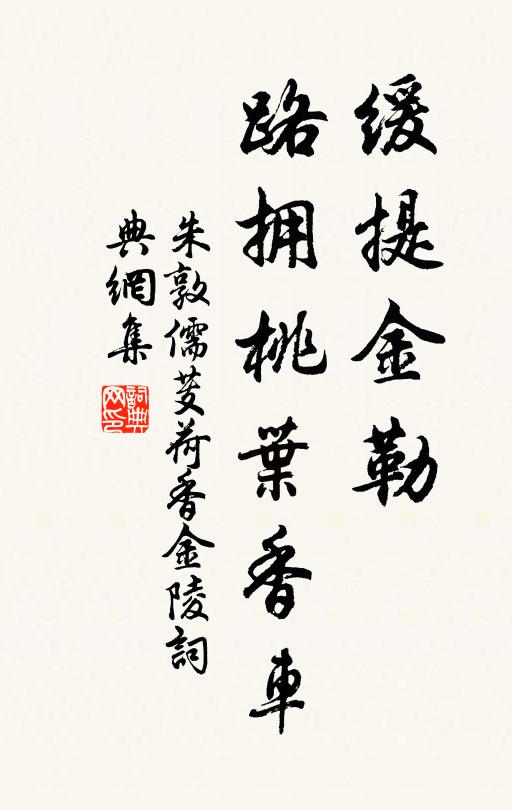 緩提金勒
路拥桃葉香車
朱敦儒芰荷香金陵詞
典網集
詞典网印